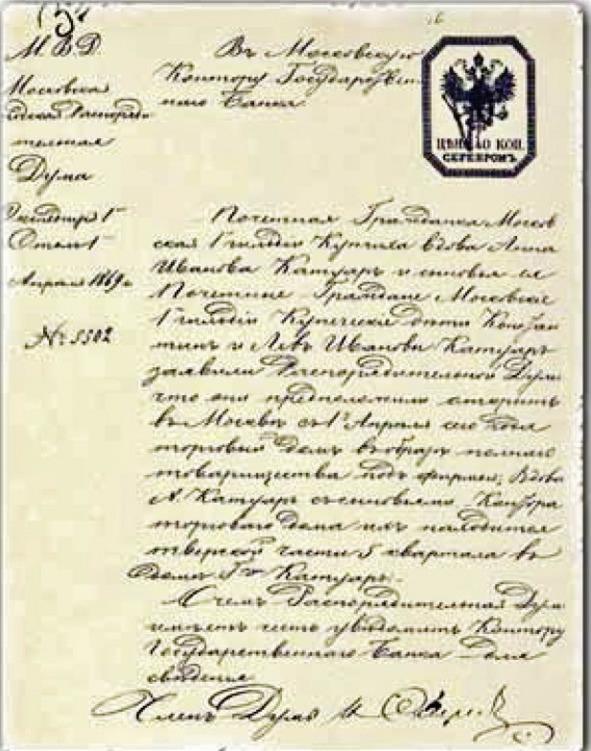 М. В. Д.
Московская
Городская Распоряди
тельная
Дума
Апреля 1869 г.
№ 5502
Въ Московскую
Контору Государствен
наго Банка.
ЦѢНА 40 КОП.
СЕРЕБРОМЪ
Почетная Гражданка Москов
ская 1 гильдіи Купчиха вдова Анна
Иванова Катуаръ и сыновья ея
Почетные Граждане Московскіе
1 гильдіи Купеческіе дѣти Констан
тинъ и Левъ Ивановы Катуаръ
заявили Распорядительной Думѣ
что они предположили открыть
въ Москвѣ съ 1го Апрѣля сего года
торговый домъ въ образѣ полнаго
товарищества подъ фирмою: Вдова
А. Катуаръ съ сыновьями. Контора
торговаго дома ихъ находится
тверской части 5 квартала въ
домѣ Гг. Катуаръ.
О чемъ Распорядительная Дума
имѣетъ честь увѣдомить Контору
Государственнаго Банка для
свѣденія
Членъ Думы